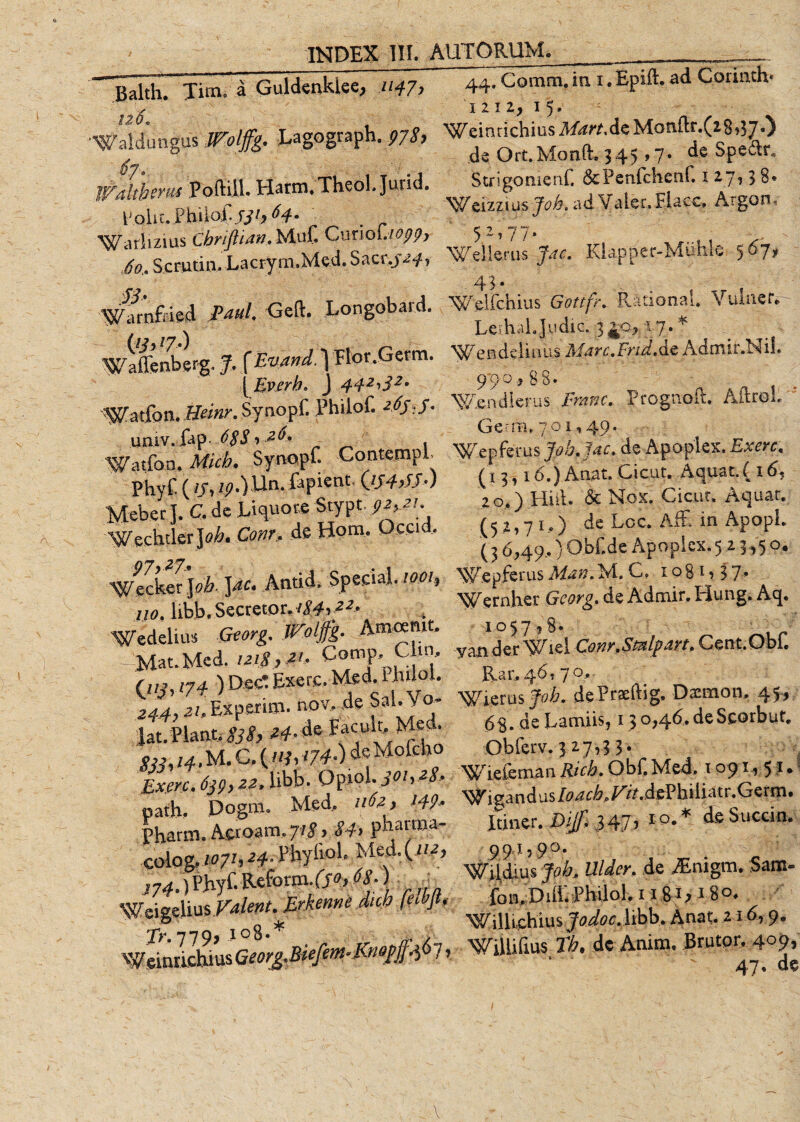 INDEX III. AUTORUM.
Balth. Tim. à Guldenklee, 1147,
126.
Waldungus Wolffg. Lagograph. 978,
67.
Waltherus Postill. Harm. Theol. Jurid.
Polit. Philos. 531, 64.
Warlizius Christian. Mus. Curios. 1099,
60. Scrutin. Lacrym. Med. Sacr. 524,
53.
Warnfried Paul. Gest. Longobard.
(13, 17.)
Wassenberg. J. {Evand.} Flor. Germ.
{Everh.} 442, 32.
Watson. Heinr. Synops. Philos. 265. 5.
univ. sap. 688, 26.
Watson. Mich. Synops. Contempl.
Phys. (15, 19.) Un. sapient. (154, 55.)
Meber J. C. de Liquore Stypt. 92, 21.
Wechtler Joh. Conr. de Hom. Occid.
97, 27.
Wecker Joh. Jac. Antid. Special. 1001,
110. libb. Secretor. 184, 22.
Wedelius Georg. Wolffg. Amœnit.
Mat. Med. 1218, 21. Comp. Clin.
(113, 174.) Dec. Exerc. Med. Philol.
244, 21. Experim. nov. de Sal. Vo-
lat. Plant. 838, 24. de Facult. Med.
833, 14. M. C. (113, 174.) de Moscho
Exerc. 639, 22. libb. Opiol. 301, 28.
path. Dogm. Med. 1162, 149.
Pharm. Acroam. 718, 84, pharma-
colog. 1071, 24. Physiol. Med. (112,
174.) Phys. Reform. (50, 68.)
Weigelius Valent. Erkenne dich selbst.
Tr. 779, 108.*
Weinrichius Georg. Biesem-Knopff. 367,
44. Comm. in 1. Epist. ad Corinth.
1212, 15.
Weinrichius Mart. de Monstr. (28, 37.)
de Ort. Monst. 345, 7. de Spectr.
Strigomenf. & Penschenf. 127, 38.
Weizzius Joh. ad Valer. Flacc. Argon.
52, 77.
Wellerus Jac. Klapper-Mühle 567,
43.
Welschius Gottfr. Rational. Vulner.
Lethal. Judic. 340, 17.*
Wendelinus Marc. Frid. de Admir. Nil.
990, 88.
Wendlerus Franc. Prognost. Astrol.
Germ. 701, 49.
Wepferus Joh. Jac. de Apoplex. Exerc.
(13, 16.) Anat. Cicut. Aquat. (16,
20.) Hist. & Nox. Cicut. Aquat.
(52, 71.) de Loc. Aff. in Apopl.
(36, 49.) Obs. de Apoplex. 523, 50.
Wepferus Man. M. C. 1081, 37.
Wernher Georg. de Admir. Hung. Aq.
1057, 8.
van der Wiel Conr. Stalpart. Cent. Obs.
Rar. 46, 70.
Wierus Joh. de Præstig. Dæmon. 45,
68. de Lamiis, 130, 46. de Scorbut.
Observ. 327, 33.
Wieseman Rich. Obs. Med. 1091, 51.
Wigandus Ioach. Vit. de Philiatr. Germ.
Itiner. Diss. 347, 10.* de Succin.
991, 90.
Wildius Joh. Ulder. de Ænigm. Sam-
son. Diss. Philol. 1181, 180.
Willichius Jodoc. libb. Anat. 216, 9.
Willisius Th. de Anim. Brutor. 409,
47. de